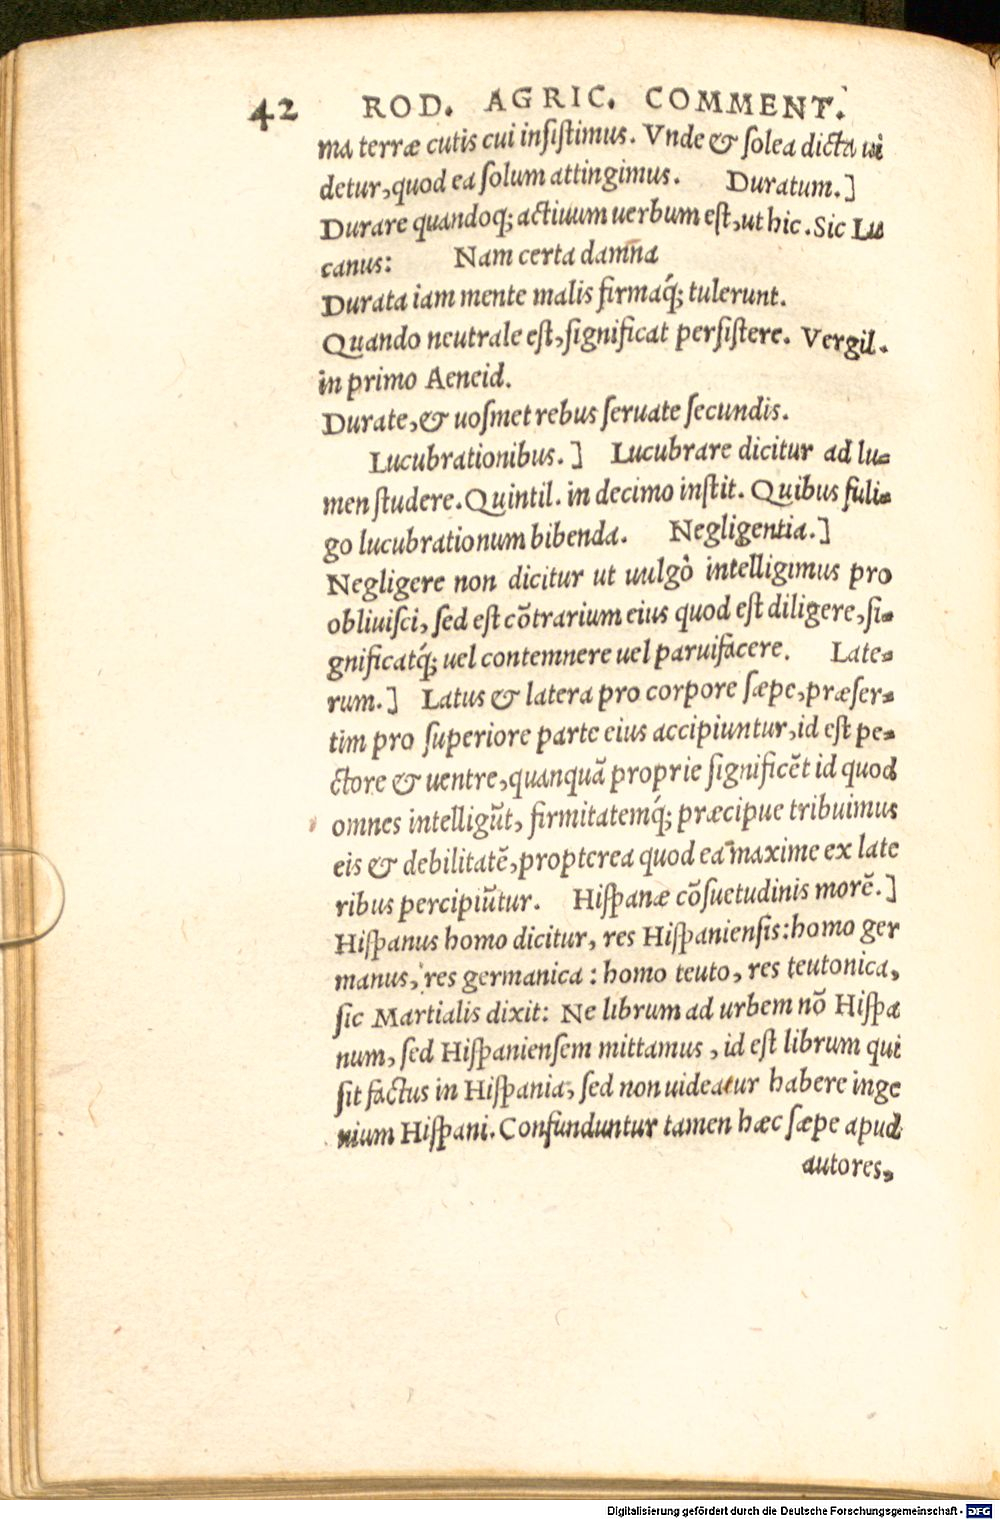 42 ROD. AGRIC. COMMENT.
ma terræ cutis cui insiſtimus. Vnde & ſolea dicta ui
detur, quod ea ſolum attingimus. Duratum.]
Durare quandoq; actiuum uerbum eſt, ut hic. Sic Lu
canus: Nam certa damna
Durata iam mente malis firmaq́; tulerunt.
Quando neutrale eſt, ſignificat perſiſtere. Vergil.
in primo Aeneid.
Durate, & uoſmet rebus ſeruate ſecundis.
Lucubrationibus.] Lucubrare dicitur ad lu-
men ſtudere. Quintil. in decimo inſtit. Quibus fuli-
go lucubrationum bibenda. Negligentia.]
Negligere non dicitur ut uulgò intelligimus pro
obliuiſci, ſed eſt cõtrarium eius quod eſt diligere, ſi-
gnificatq́; uel contemnere uel paruifacere. Late-
rum.] Latus & latera pro corpore ſæpe, præſer-
tim pro ſuperiore parte eius accipiuntur, id eſt pe-
ctore & uentre, quanquã proprie ſignificẽt id quod
omnes intelligũt, firmitatemq́; præcipue tribuimus
eis & debilitatẽ, propterea quod ea maxime ex late
ribus percipiũtur. Hiſpanæ cõſuetudinis morẽ.]
Hiſpanus homo dicitur, res Hiſpanienſis: homo ger
manus, res germanica: homo teuto, res teutonica,
ſic Martialis dixit: Ne librum ad urbem nõ Hiſpa
num, ſed Hiſpanienſem mittamus, id eſt librum qui
ſit factus in Hiſpania, ſed non uideatur habere inge
nium Hiſpani. Confunduntur tamen hæc ſæpe apud
autores,
Digitalisierung gefördert durch die Deutsche Forschungsgemeinschaft - DFG